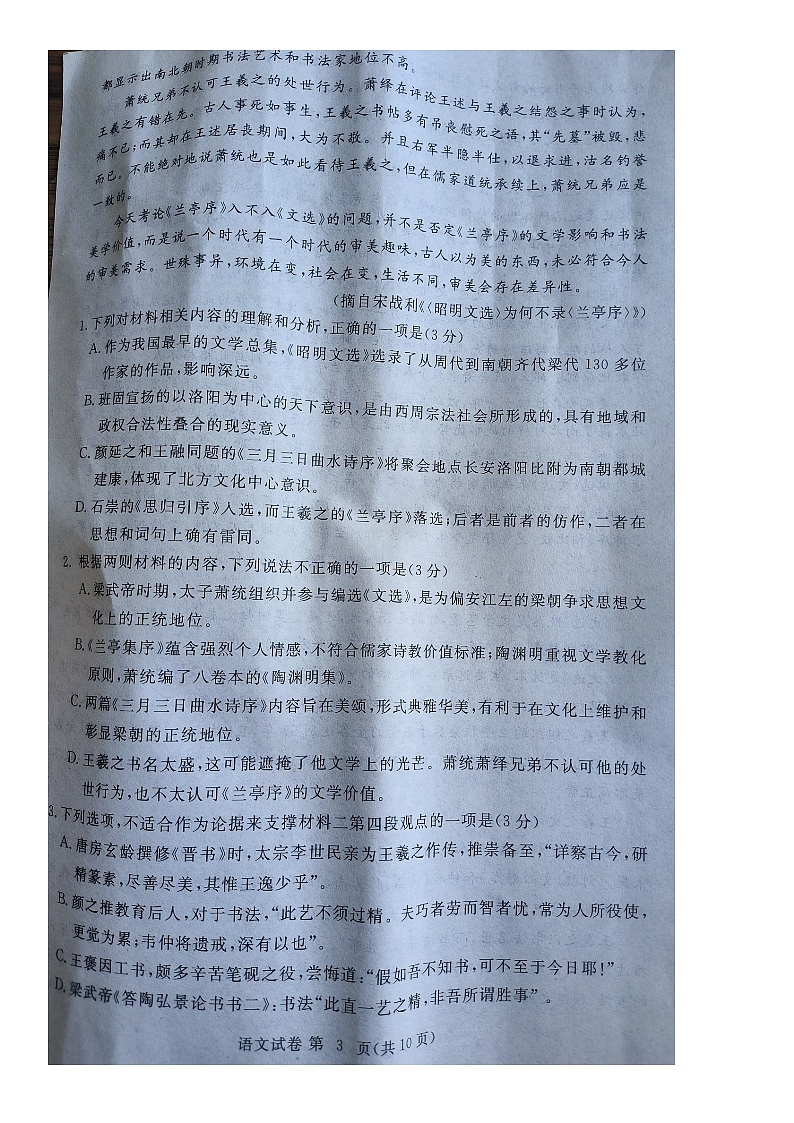 都显示出南北朝时期书法艺术和书法家地位不高。
萧统兄弟不认可王羲之的处世行为。萧绎在评论王述与王羲之结怨之事时认为，
王羲之有错在先。古人事死如事生，王羲之书帖多有吊丧慰死之语，其“先墓”被毁，悲
痛不已；而其却在王述居丧期间，大为不敬。并且右军半隐半仕，以退求进，沽名钓誉
而已。不能绝对地说萧统也是如此看待王羲之，但在儒家道统承续上，萧统兄弟应是
一致的。
今天考论《兰亭序》入不入《文选》的问题，并不是否定《兰亭序》的文学影响和书法
美学价值，而是说一个时代有一个时代的审美趣味，古人以为美的东西，未必符合今人
的审美需求。世殊事异，环境在变，社会在变，生活不同，审美会存在差异性。
（摘自宋战利《〈昭明文选〉为何不录〈兰亭序〉》）
1. 下列对材料相关内容的理解和分析，正确的一项是（3分）
A. 作为我国最早的文学总集，《昭明文选》选录了从周代到南朝齐代梁代 130 多位
作家的作品，影响深远。
B. 班固宣扬的以洛阳为中心的天下意识，是由西周宗法社会所形成的，具有地域和
政权合法性叠合的现实意义。
C. 颜延之和王融同题的《三月三日曲水诗序》将聚会地点长安洛阳比附为南朝都城
建康，体现了北方文化中心意识。
D. 石崇的《思归引序》入选，而王羲之的《兰亭序》落选；后者是前者的仿作，二者在
思想和词句上确有雷同。
2. 根据两则材料的内容，下列说法不正确的一项是（3分）
A. 梁武帝时期，太子萧统组织并参与编选《文选》，是为偏安江左的梁朝争求思想文
化上的正统地位。
B. 《兰亭集序》蕴含强烈个人情感，不符合儒家诗教价值标准；陶渊明重视文学教化
原则，萧统编了八卷本的《陶渊明集》。
C. 两篇《三月三日曲水诗序》内容旨在美颂，形式典雅华美，有利于在文化上维护和
彰显梁朝的正统地位。
D. 王羲之书名太盛，这可能遮掩了他文学上的光芒。萧统萧绎兄弟不认可他的处
世行为，也不太认可《兰亭序》的文学价值。
3. 下列选项，不适合作为论据来支撑材料二第四段观点的一项是（3分）
A. 唐房玄龄撰修《晋书》时，太宗李世民亲为王羲之作传，推崇备至，“详察古今，研
精篆素，尽善尽美，其惟王逸少乎”。
B. 颜之推教育后人，对于书法，“此艺不须过精。夫巧者劳而智者忧，常为人所役使，
更觉为累；韦仲将遗戒，深有以也”。
C. 王褒因工书，颇多辛苦笔砚之役，尝悔道：“假如吾不知书，可不至于今日耶！”
D. 梁武帝《答陶弘景论书书二》：书法“此直一艺之精，非吾所谓胜事”。
语文试卷 第 3 页（共 10 页）